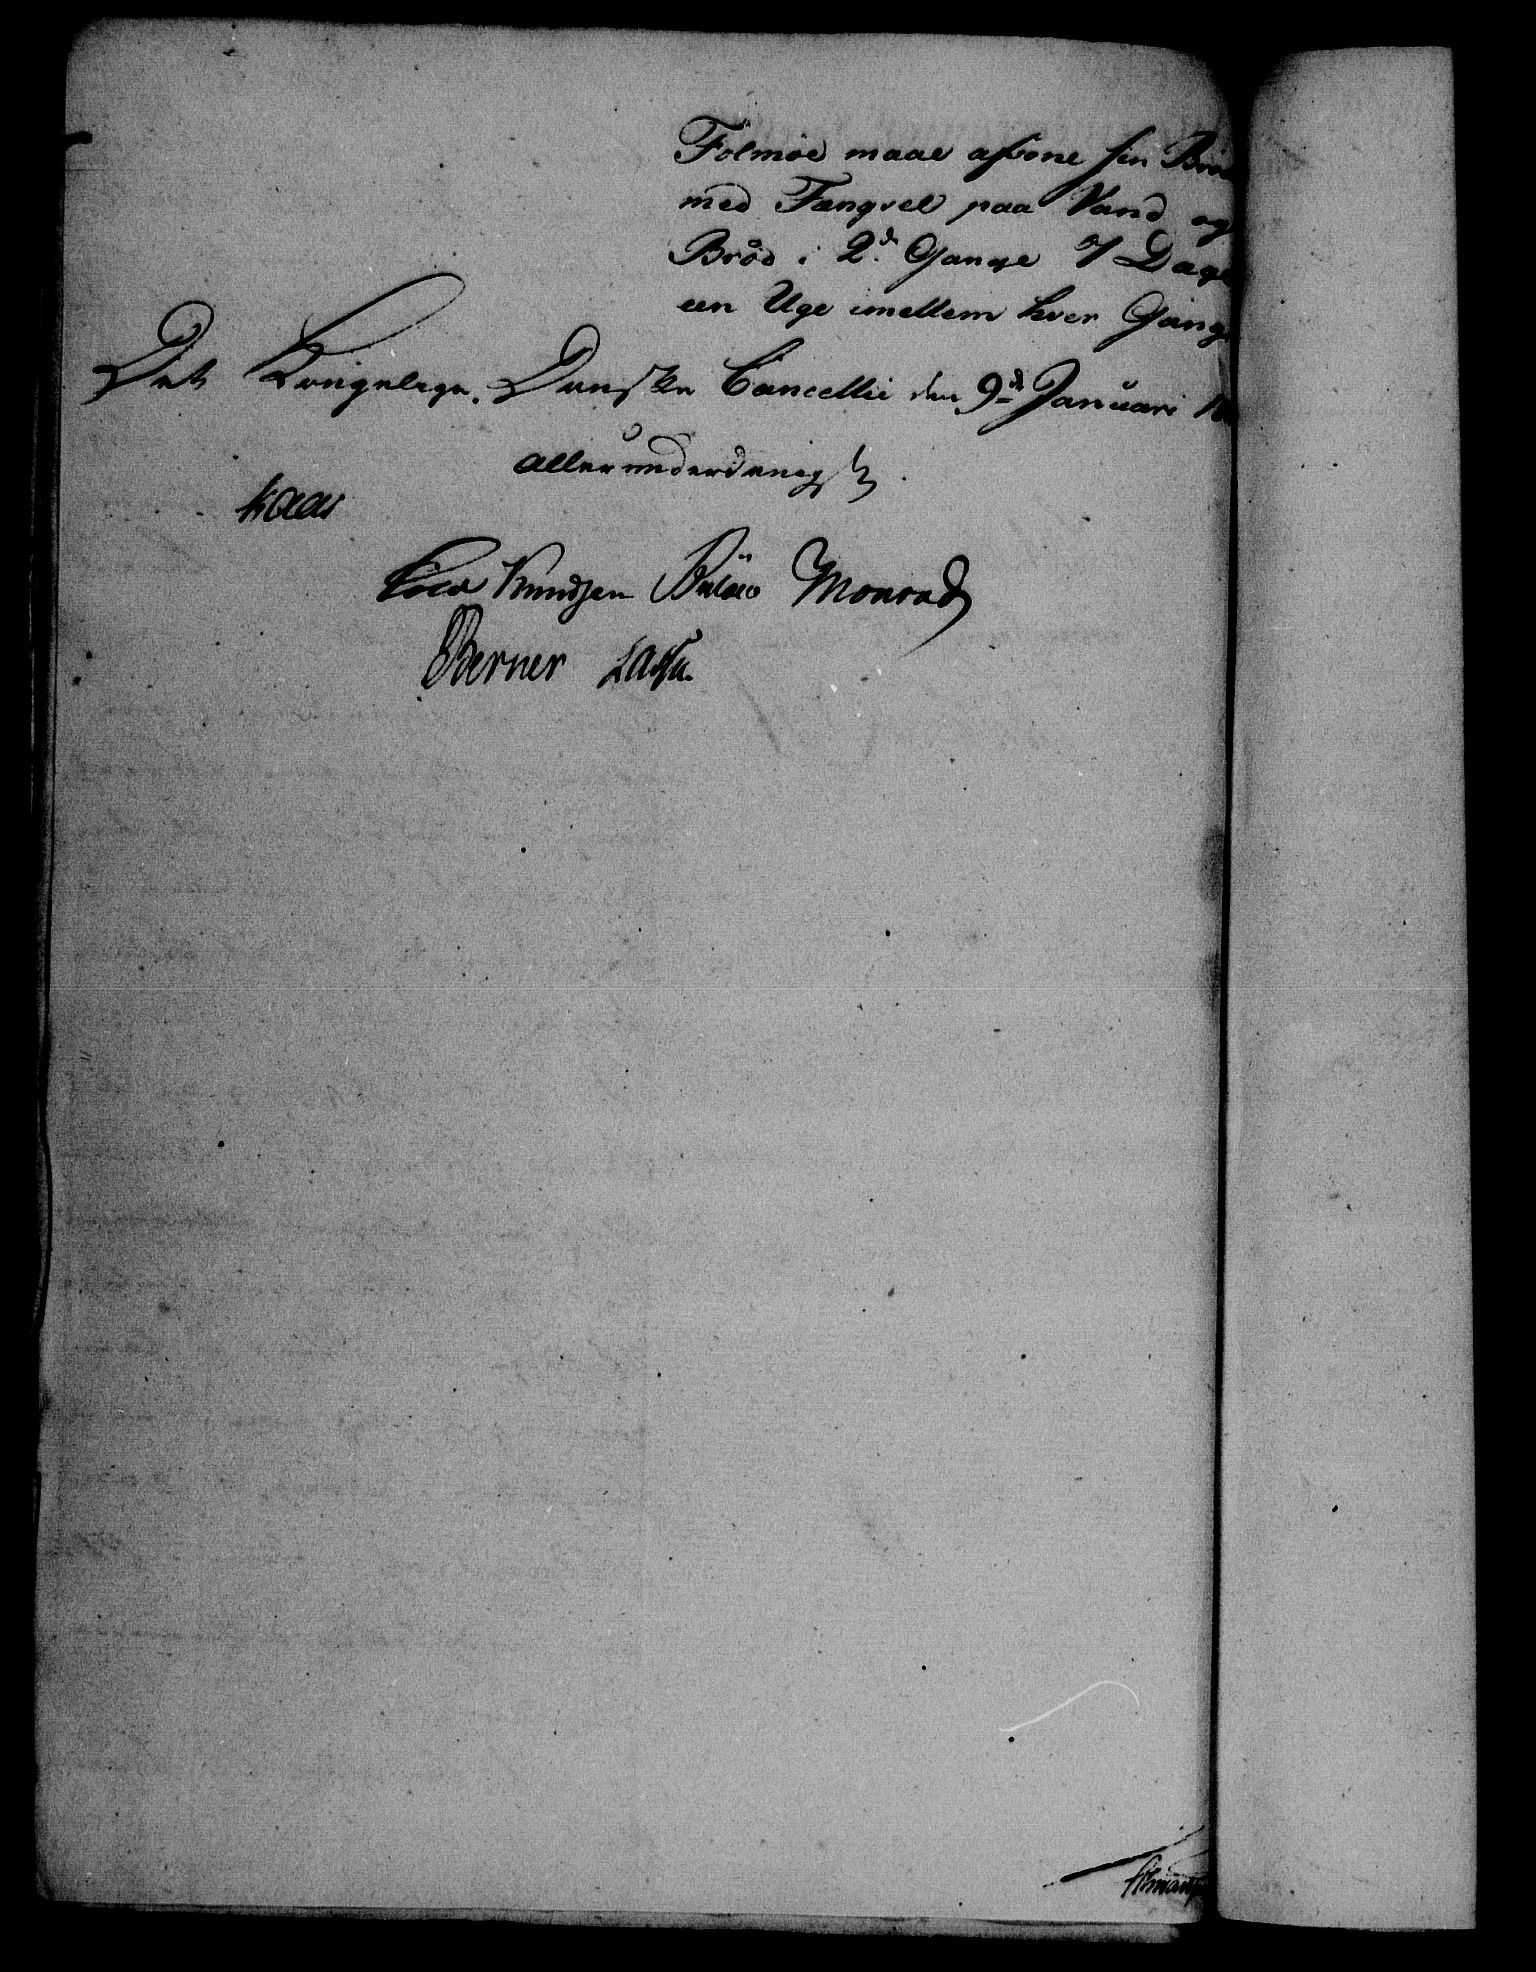 Folmöe maae afsone sin
med Fængsel paa Vand og
Bröd i 2de Gange 7 Dage
een Uge imellem hver Gang
Det Kongelige Danske Cancellie den 9de Januari
allerunderdanigst
Kaas
Knudsen Bülow Monrad
Berner Lassen